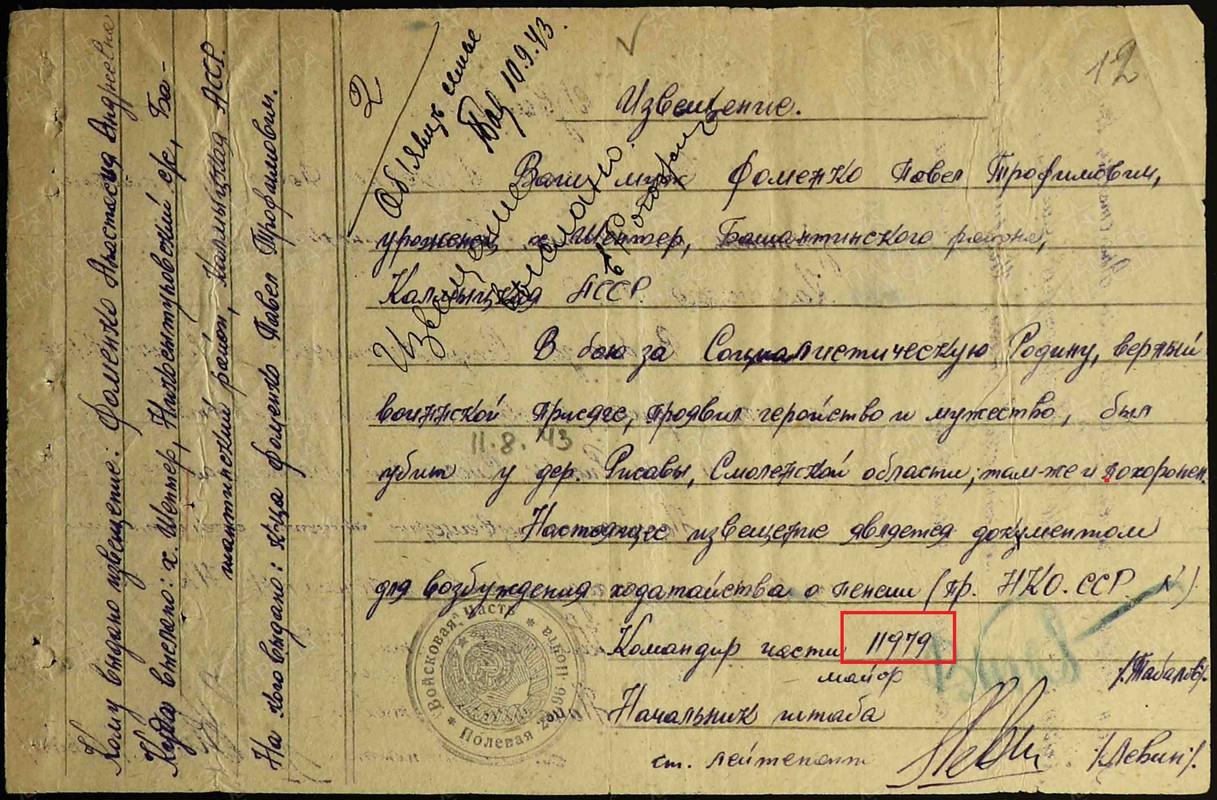 Кому выдано извещение: Фоменко Анастасия Андреевна
Куда выслано: х. Шептер, Нижостаровский с/с, Ба-
шантинский район, Калмыцкая АССР.
На кого выдано: к-ца Фоменко Павел Трофимович.
2
Объявить семье
10.9.43.
Извещение
выслано.
12
Извещение.
Ваш муж Фоменко Павел Трофимович,
уроженец х. Шептер, Башантинского района,
Калмыцкая АССР.
В бою за Социалистическую Родину, верный
воинской присяге, проявил геройство и мужество, был
11.8.43
убит у дер. Рисавы, Смоленской области; там-же и похоронен.
Настоящее извещение является документом
для возбуждения ходатайства о пенсии (пр. НКО.ССР N )
Командир части 11979
майор /Табалов/.
Начальник штаба
ст. лейтенант /Левин/.
Войсковая часть Полевая почта